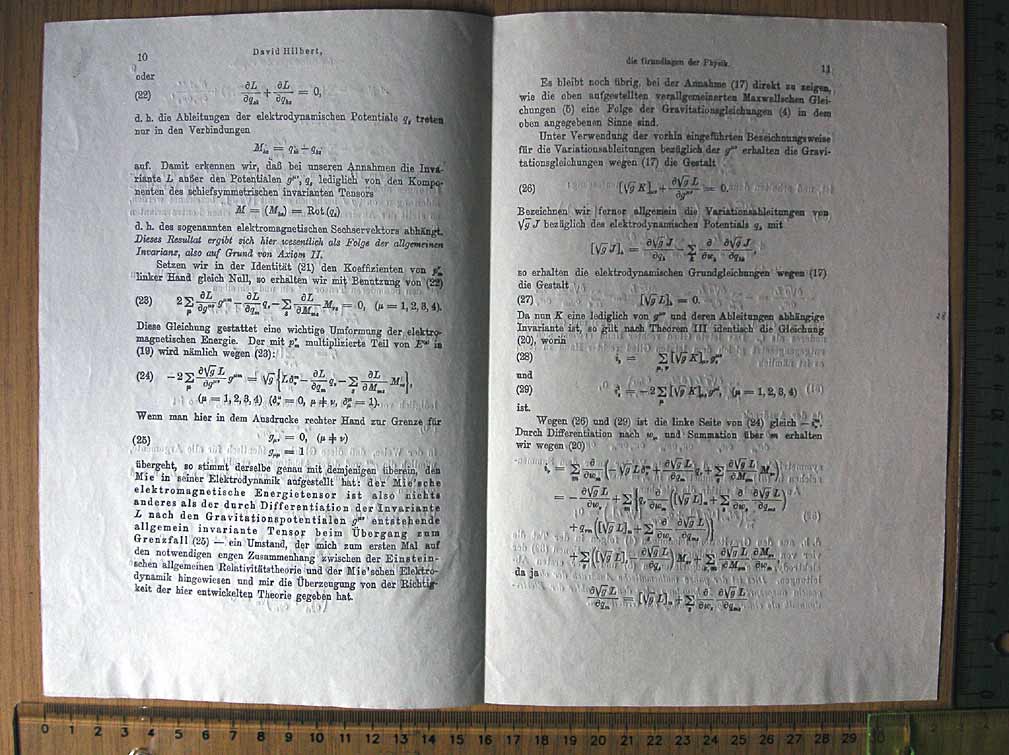 10
David Hilbert,
oder
(22) ∂L/∂q_sk + ∂L/∂q_ks = 0,
d. h. die Ableitungen der elektrodynamischen Potentiale q_s treten
nur in den Verbindungen
M_ks = q_sk − q_ks
auf. Damit erkennen wir, daß bei unseren Annahmen die Inva-
riante L außer den Potentialen g^μν, q_s lediglich von den Kompo-
nenten des schiefsymmetrischen invarianten Tensors
M = (M_ks) = Rot (q_s)
d. h. des sogenannten elektromagnetischen Sechservektors abhängt.
Dieses Resultat ergibt sich hier wesentlich als Folge der allgemeinen
Invarianz, also auf Grund von Axiom II.
Setzen wir in der Identität (21) den Koeffizienten von
linker Hand gleich Null, so erhalten wir mit Benutzung von (22)
(23) 2 Σ_μ ∂L/∂g^μν g^μm − ∂L/∂q_m q_ν − Σ_s ∂L/∂M_ms M_νs = 0, (μ = 1, 2, 3, 4).
Diese Gleichung gestattet eine wichtige Umformung der elektro-
magnetischen Energie. Der mit multiplizierte Teil von in
(19) wird nämlich wegen (23):
(24) −2 Σ_μ ∂√g L/∂g^μν g^μm = √g {L δ_ν^m − ∂L/∂q_m q_ν − Σ_s ∂L/∂M_ms M_νs},
(μ = 1, 2, 3, 4) (δ_ν^μ = 0, μ ≠ ν, δ_μ^μ = 1).
Wenn man hier in dem Ausdrucke rechter Hand zur Grenze für
(25) g_μν = 0, (μ ≠ ν)
g_μμ = 1
übergeht, so stimmt derselbe genau mit demjenigen überein, den
Mie in seiner Elektrodynamik aufgestellt hat: der Mie'sche
elektromagnetische Energietensor ist also nichts
anderes als der durch Differentiation der Invariante
L nach den Gravitationspotentialen g^μν entstehende
allgemein invariante Tensor beim Übergang zum
Grenzfall (25) — ein Umstand, der mich zum ersten Mal auf
den notwendigen engen Zusammenhang zwischen der Einstein-
schen allgemeinen Relativitätstheorie und der Mie'schen Elektro-
dynamik hingewiesen und mir die Überzeugung von der Richtig-
keit der hier entwickelten Theorie gegeben hat.
die Grundlagen der Physik.
11
Es bleibt noch übrig, bei der Annahme (17) direkt zu zeigen,
wie die oben aufgestellten verallgemeinerten Maxwellschen Glei-
chungen (5) eine Folge der Gravitationsgleichungen (4) in dem
oben angegebenen Sinne sind.
Unter Verwendung der vorhin eingeführten Bezeichnungsweise
für die Variationsableitungen bezüglich der g^μν erhalten die Gravi-
tationsgleichungen wegen (17) die Gestalt
(26) [√g K]_μν + ∂√g L/∂g^μν = 0.
Bezeichnen wir ferner allgemein die Variationsableitungen von
√g J bezüglich des elektrodynamischen Potentials q_h mit
[√g J]_h = ∂√g J/∂q_h − Σ_k ∂/∂w_k ∂√g J/∂q_hk,
so erhalten die elektrodynamischen Grundgleichungen wegen (17)
die Gestalt
(27) [√g L]_h = 0.
Da nun K eine lediglich von g^μν und deren Ableitungen abhängige
Invariante ist, so gilt nach Theorem III identisch die Gleichung
(20), worin
(28) i_s = Σ_μ,ν [√g K]_μν g_s^μν
und
(29) i_s^l = −2 Σ_μ [√g K]_μs g^μl, (μ = 1, 2, 3, 4)
ist.
Wegen (26) und (29) ist die linke Seite von (24) gleich −i_ν^m.
Durch Differentiation nach w_m und Summation über m erhalten
wir wegen (20)
i_ν = Σ_m ∂/∂w_m (−√g L δ_ν^m + ∂√g L/∂q_m q_ν + Σ_s ∂√g L/∂M_ms M_νs)
= −∂√g L/∂w_ν + Σ_m {q_ν ∂/∂w_m ([√g L]_m + Σ_s ∂/∂w_s ∂√g L/∂q_ms)
+ q_νm ([√g L]_m + Σ_s ∂/∂w_s ∂√g L/∂q_ms)}
+ Σ_s ([√g L]_s − ∂√g L/∂q_s) M_νs + Σ_s,m ∂√g L/∂M_sm ∂M_νs/∂w_m,
da ja
∂√g L/∂q_m = [√g L]_m + Σ_s ∂/∂w_s ∂√g L/∂q_ms
0 1 2 3 4 5 6 7 8 9 10 11 12 13 14 15 16 17 18 19 20 21 22 23 24 25 26 27 28 29 30